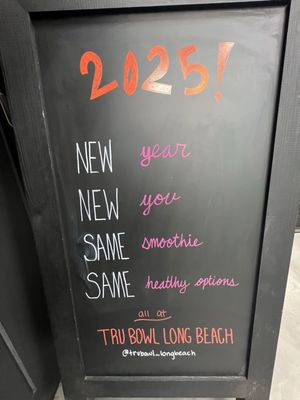 2025!
NEW year
NEW you
SAME smoothie
SAME heatlhy options
all at
TRU BOWL LONG BEACH
@trubowl_longbeach